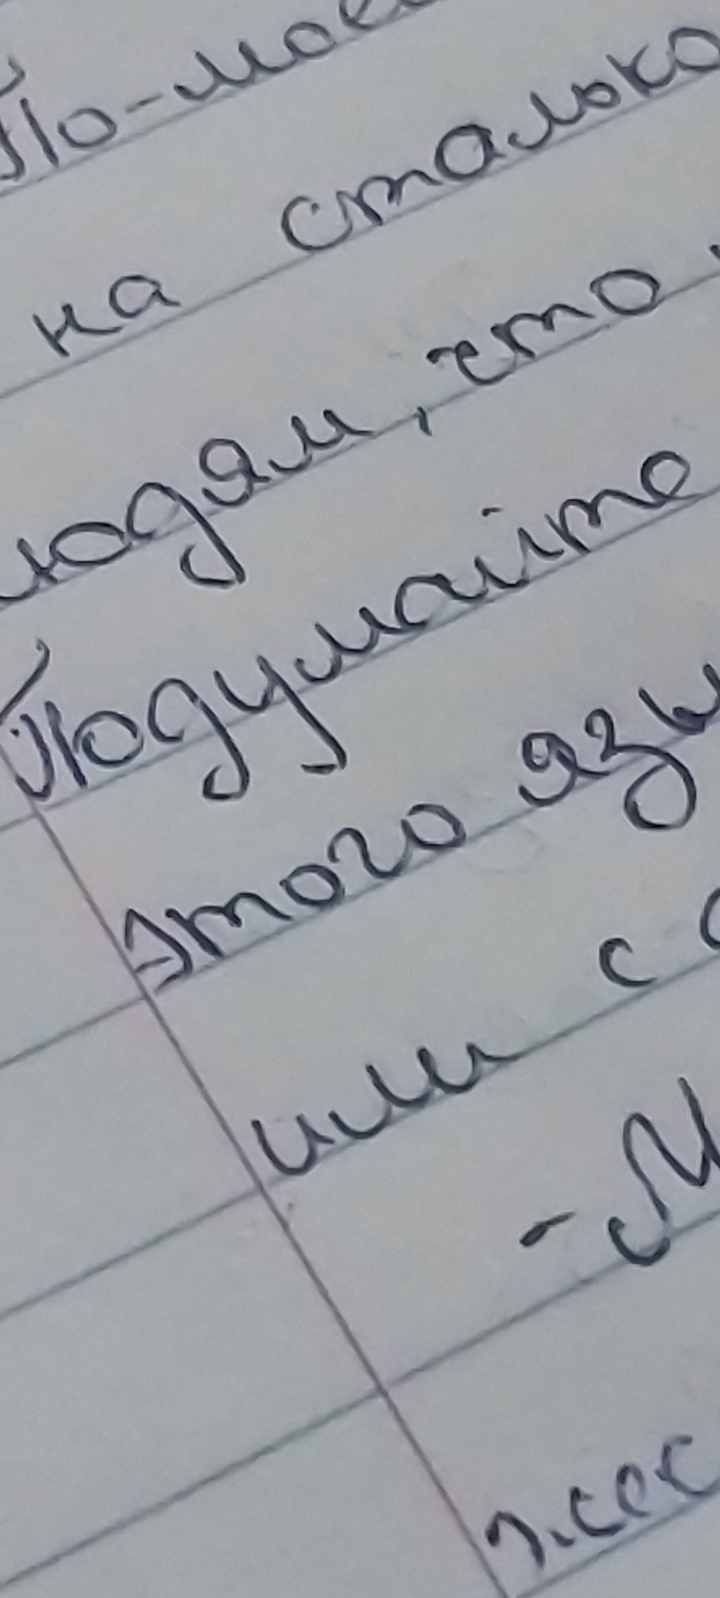 По-мое
на сталько
людям, что
Подумайте
этого язы
или с
- М